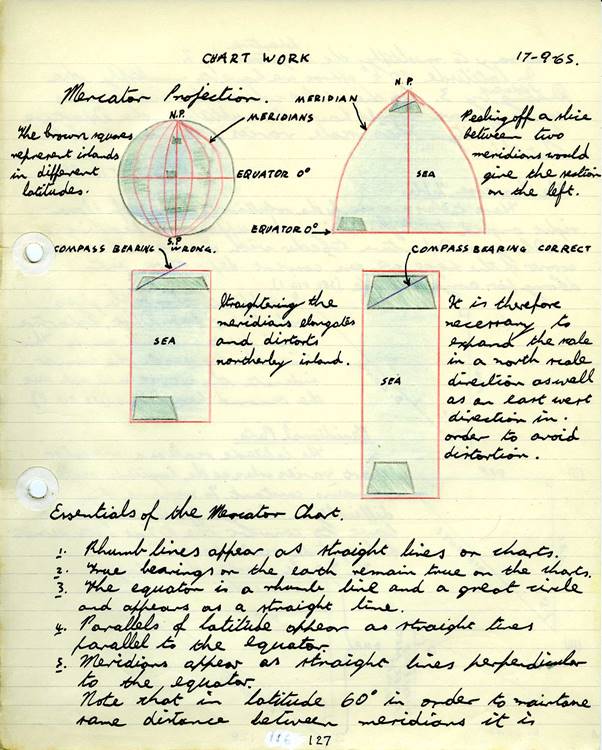 CHART WORK 17-9-65.
Mercator Projection.
N.P.
MERIDIANS
The brown squares
represent islands
in different
latitudes.
EQUATOR 0°
S.P
N.P.
MERIDIAN
SEA
EQUATOR 0°
Peeling off a slice
between two
meridians would
give the section
on the left.
COMPASS BEARING WRONG.
SEA
Straightering the
meridians elongates
and distorts
northerley island.
COMPASS BEARING CORRECT
SEA
It is therefore
necessary to
expand the scale
in a north scale
direction aswell
as an east west
direction in.
order to avoid
distortion.
Essentials of the Mercator Chart.
1. Rhumb lines appear as straight lines on charts.
2. True bearings on the earth remain true on the charts.
3. The equator is a rhumb line and a great circle
and appears as a straight line.
4. Parallels of latitude appear as straight lines
parallel to the equator.
5. Meridians appear as straight lines perpendicular
to the equator.
Note that in latitude 60° in order to
same distance between meridians it is
126 127